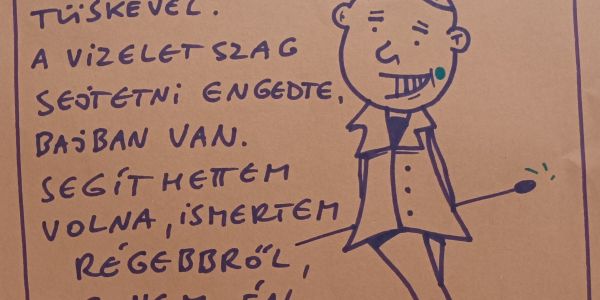 TÜSKÉVEL.
A VIZELET SZAG
SEJTETNI ENGEDTE,
BAJBAN VAN.
SEGÍTHETTEM
VOLNA, ISMERTEM
RÉGEBBRŐL,
ÉN